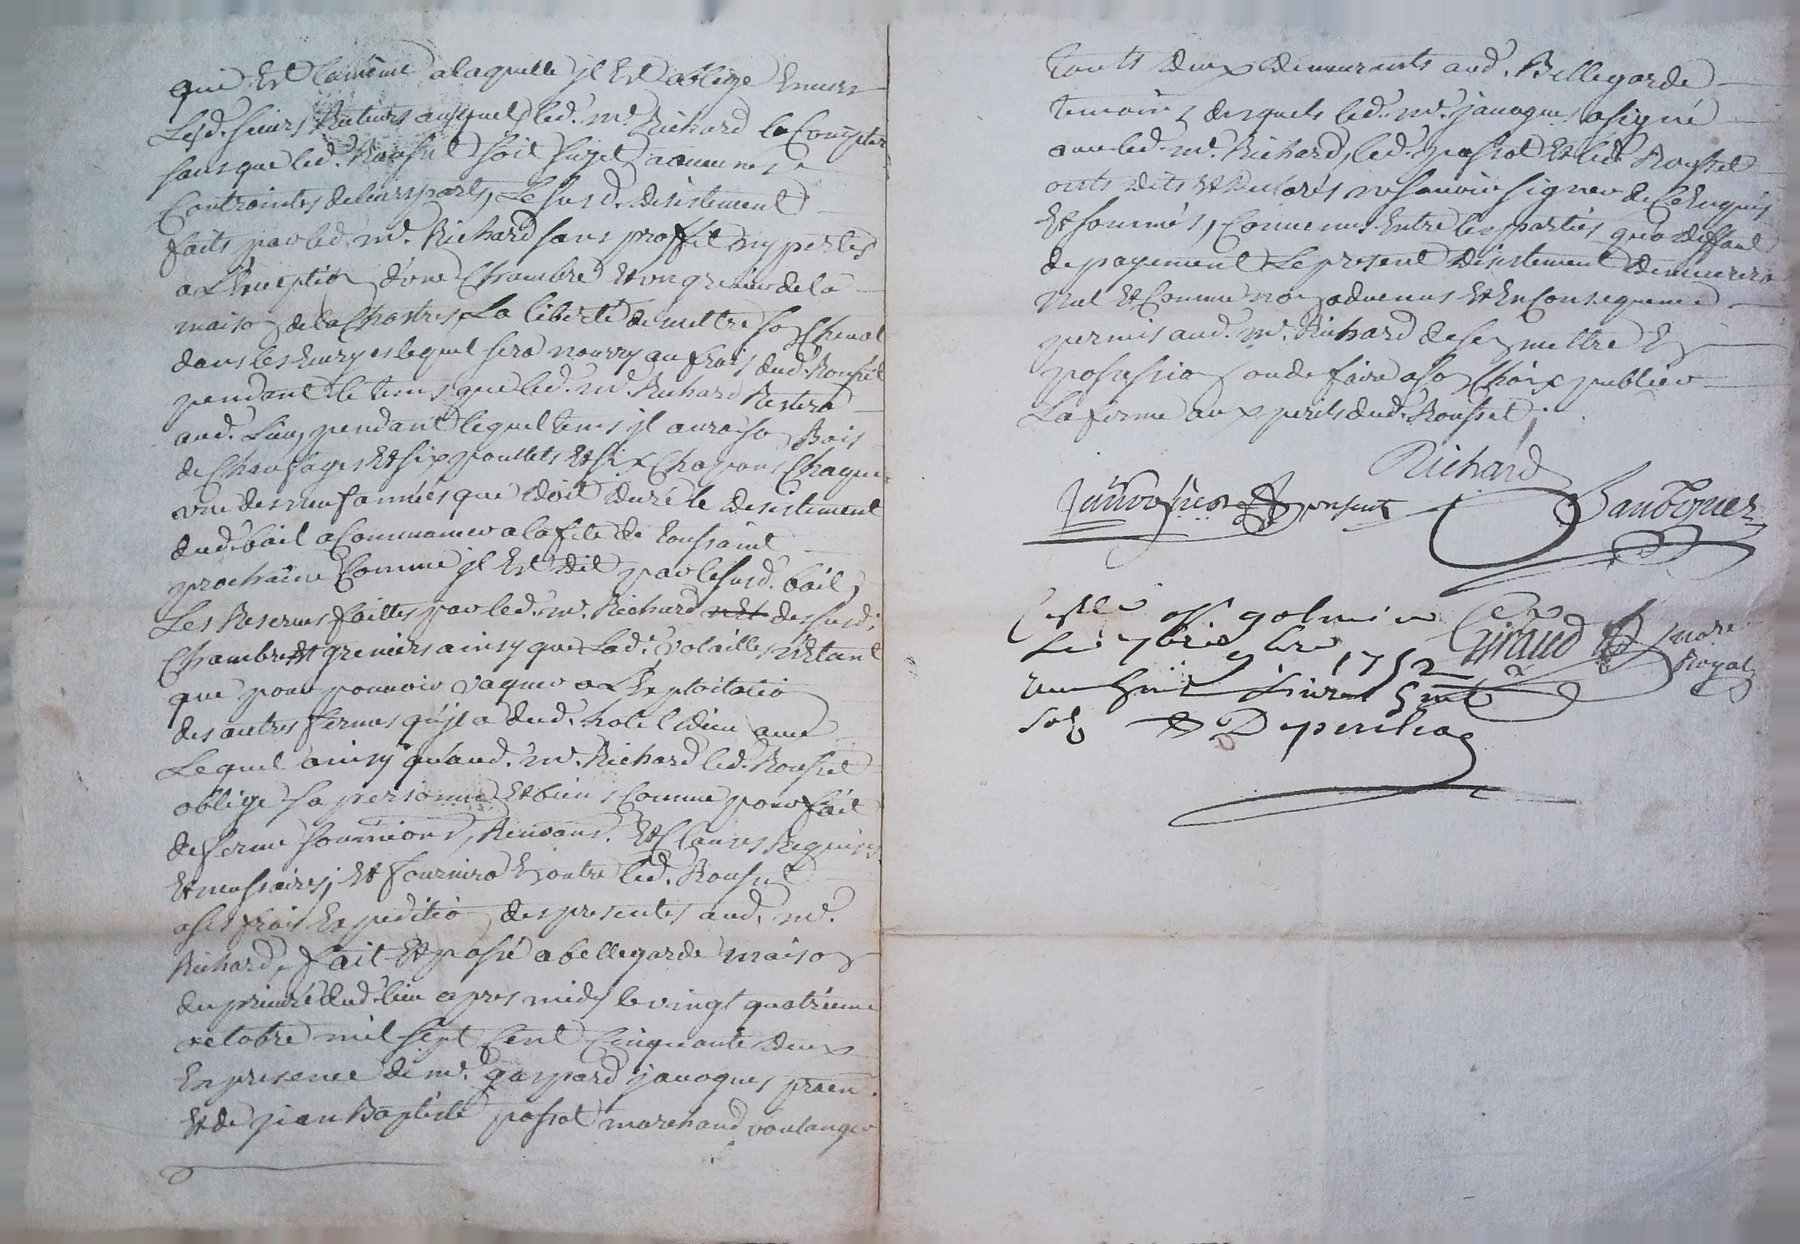 qui Est lameme alaquelle jl Est obligé Envers
Lesd. sieurs Recteurs auxquels led. mr. Richard la Compter
sans que led. Roussel soit sujet a aucunes
Contraintes deleurs parts, Le susd. desistement
faits par led. mr. Richard sans proffit ny pertes
a L'Exception d'une Chambre Et un grenier de la
maison de la Chartres, La liberté de mettre son Cheval
dans les Ecuryes lequel sera nourry au frais dud. Roussel
pendant le tems que led. mr. Richard Restera
aud. Lieu, pendant lequel tems jl aura son Bois
de Chaufages Et six poullets Et six Chapons Chaque
une des neuf années que doit duré le desistement
dud. bail a Commancer a la fete de Toussaint
prochaine Comme jl Est dit par le susd. bail,
Les Reserves faittes par led. mr. Richard des susd.
Chambre Et greniers ainsy que Lad. volaille, n'Etant
que pour pouvoir vaquer a L'Exploitation
des autres fermes qu'jl a dud. hotel dieu avec
Lequel ainsy qu'aud. mr. Richard led. Roussel
oblige sa personne Et biens Comme pour fait
de ferme soumissions, Renons. Et Clauses Requises
Et necessaires; Et fournira En outre led. Roussel
a ses frais Expedition des presentes aud. mr.
Richard, fait Et passé a bellegarde maison
du prieuré dud. lieu apres midy le vingt quatrieme
octobre mil sept Cent Cinquante deux
En presence de mr. gaspard javogues praen.
Et de jean Baptiste passot marchand boulanger
touts deux demeurants aud. Bellegarde
temoins desquels led. mr. javogues a signé
avec led. mr. Richard, led. passot Et led. Roussel
onts dits Et declarés ne savoir signer de Ce Enquis
Et sommés, Convenus Entre les parties qu'a deffaut
de payement Le present desistement demeurera
Nul Et Comme non advenus Et En Consequence
permis aud. mr. Richard de se mettre En
possession ou de faire a son Choix publier
La ferme aux perils dud. Roussel.
Richard
present
Con̄llé
Le 9bre 1752
Giraud
nore
Royal
livres
sols